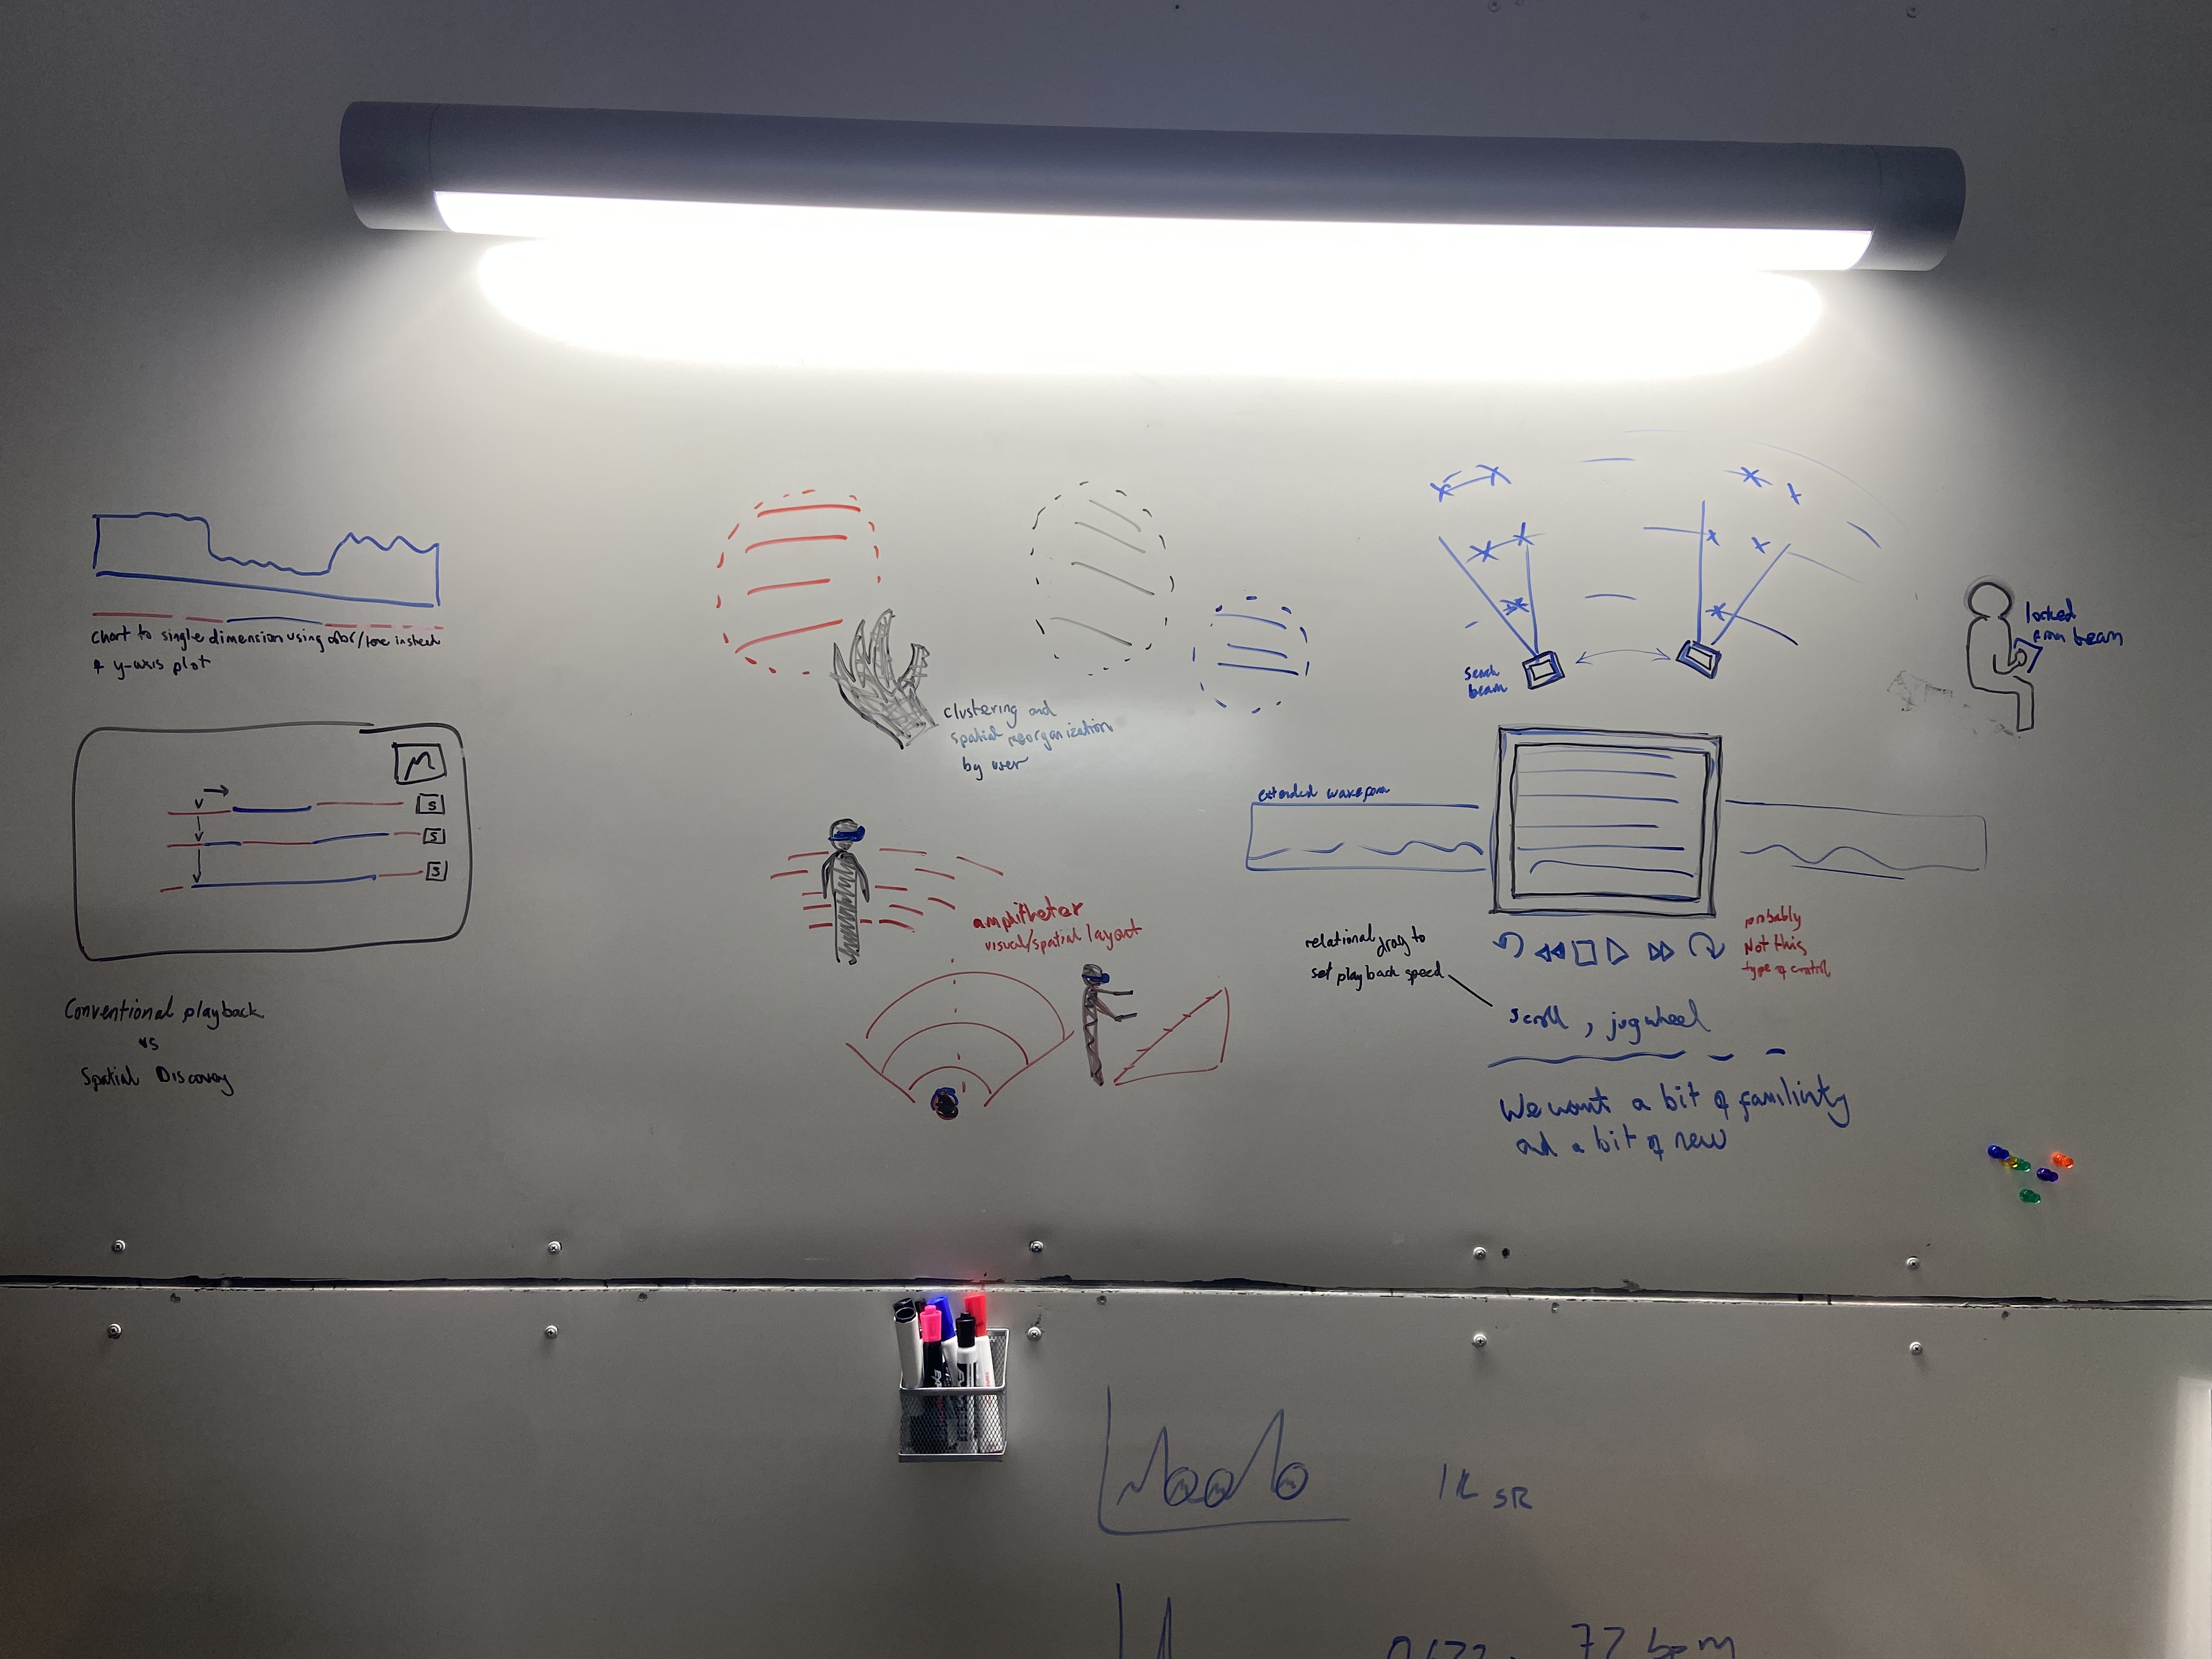 chart to single dimension using color/tone instead
of y-axis plot
M
S
S
S
Conventional playback
vs
Spatial Discovery
clustering and
spatial reorganization
by user
amphitheter
visual/spatial layout
search
beam
locked
beam
extended waveform
relational drag to
set playback speed
probably
Not this
type of control
scroll, jog wheel
We want a bit of familiarity
and a bit of new
SR
77 bpm